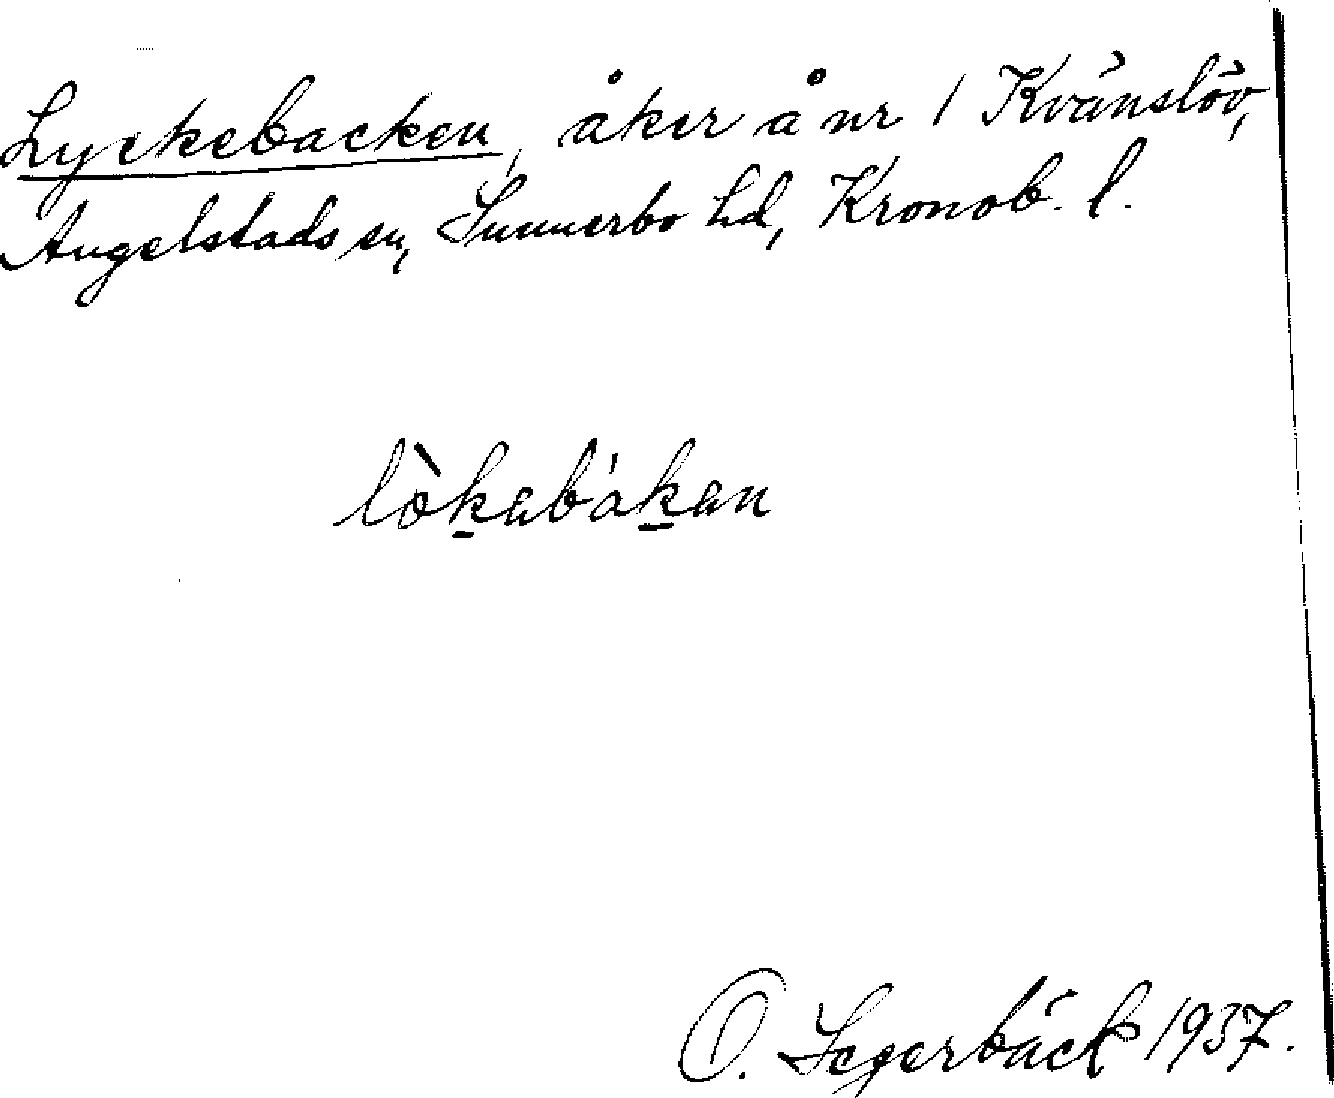 Lyckebacken, åker å nr 1 Kvänslöv,
Angelstads sn, Sunnerbo hd, Kronob. l.
lòkabákan
O. Segerbäck 1937.